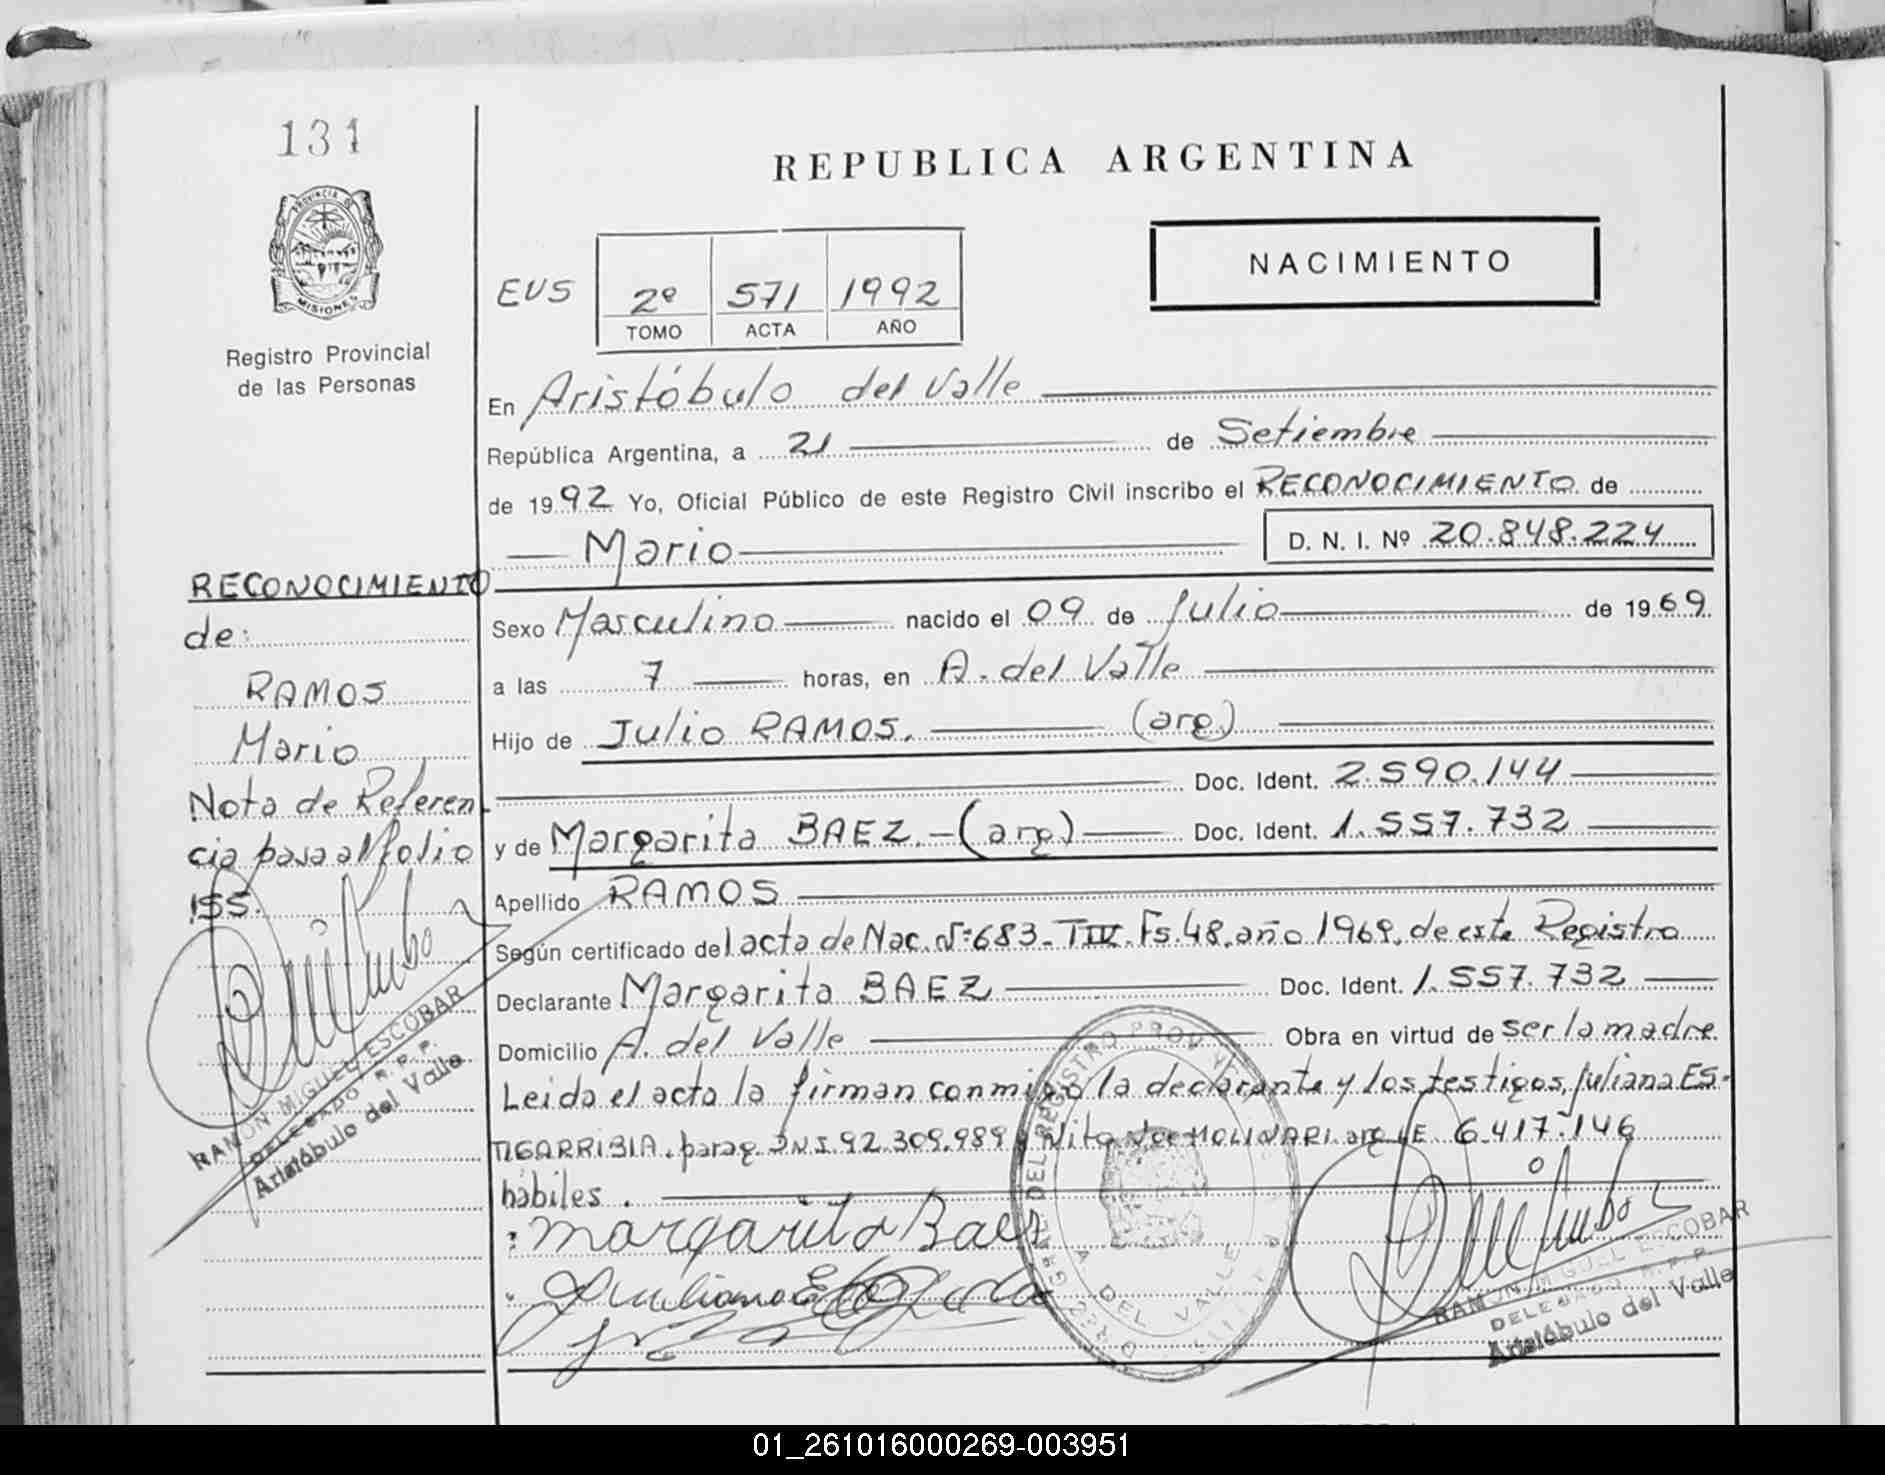 131
PROVINCIA DE
MISIONES
Registro Provincial
de las Personas
REPUBLICA ARGENTINA
NACIMIENTO
EUS 2º 571 1992
TOMO ACTA AÑO
En Aristóbulo del Valle
República Argentina, a 21 de Setiembre
de 1992 Yo, Oficial Público de este Registro Civil inscribo el RECONOCIMIENTO de
Mario D. N. I. Nº 20.848.224
Sexo Masculino nacido el 09 de Julio de 1969.
a las 7 horas, en A. del Valle
Hijo de Julio RAMOS. (arg)
Doc. Ident. 2.590.144
y de Margarita BAEZ.-(arg) Doc. Ident. 1.557.732
Apellido RAMOS
Según certificado del acta de Nac. Nº 683-TIV.Fs.48.año 1969, de este Registro
Declarante Margarita BAEZ Doc. Ident. 1.557.732
Domicilio A. del Valle Obra en virtud de ser la madre.
Leida el acta la firman conmigo la declarante y los testigos, Juliana ES-
TIGARRIBIA. parag. DNI.92.309.989 y MOLINARI arg LE 6.417.146
hábiles.
Margarita Baez
RECONOCIMIENTO
de:
RAMOS
Mario
Nota de Referen-
cia pasa al folio
155.
RAMON MIGUEL ESCOBAR
DELEGADO R.P.P.
Aristóbulo del Valle
RAMON MIGUEL ESCOBAR
DELEGADO R.P.P.
Aristóbulo del Valle
01_261016000269-003951